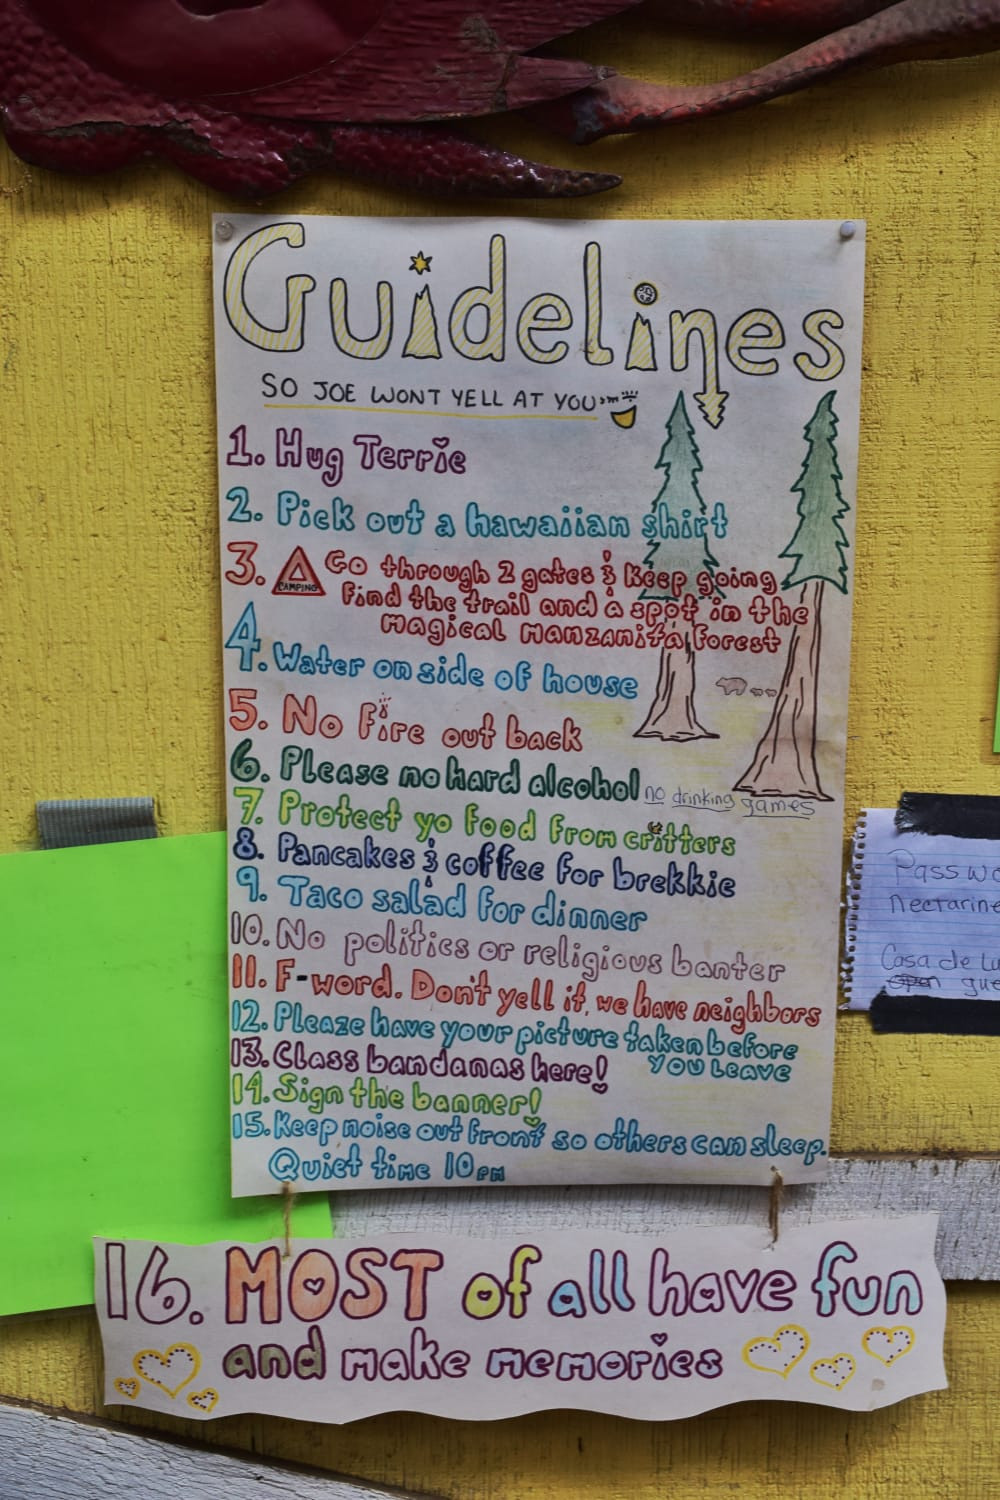 Guidelines
SO JOE WONT YELL AT YOU
1. Hug Terrie
2. Pick out a hawaiian shirt
3. CAMPING Go through 2 gates & Keep going
Find the trail and a spot in the
magical manzanita forest
4. Water on side of house
5. No Fire out back
6. Please no hard alcohol no drinking games
7. Protect yo food from critters
8. Pancakes & coffee for brekkie
9. Taco salad for dinner
10. No politics or religious banter
11. F-word. Don't yell it, we have neighbors
12. Pleaze have your picture taken before
you leave
13. Class bandanas here!
14. Sign the banner!
15. Keep noise out front so others can sleep.
Quiet time 10pm
16. MOST of all have fun
and make memories
Passwo
nectarine
Casa de Lu
gue